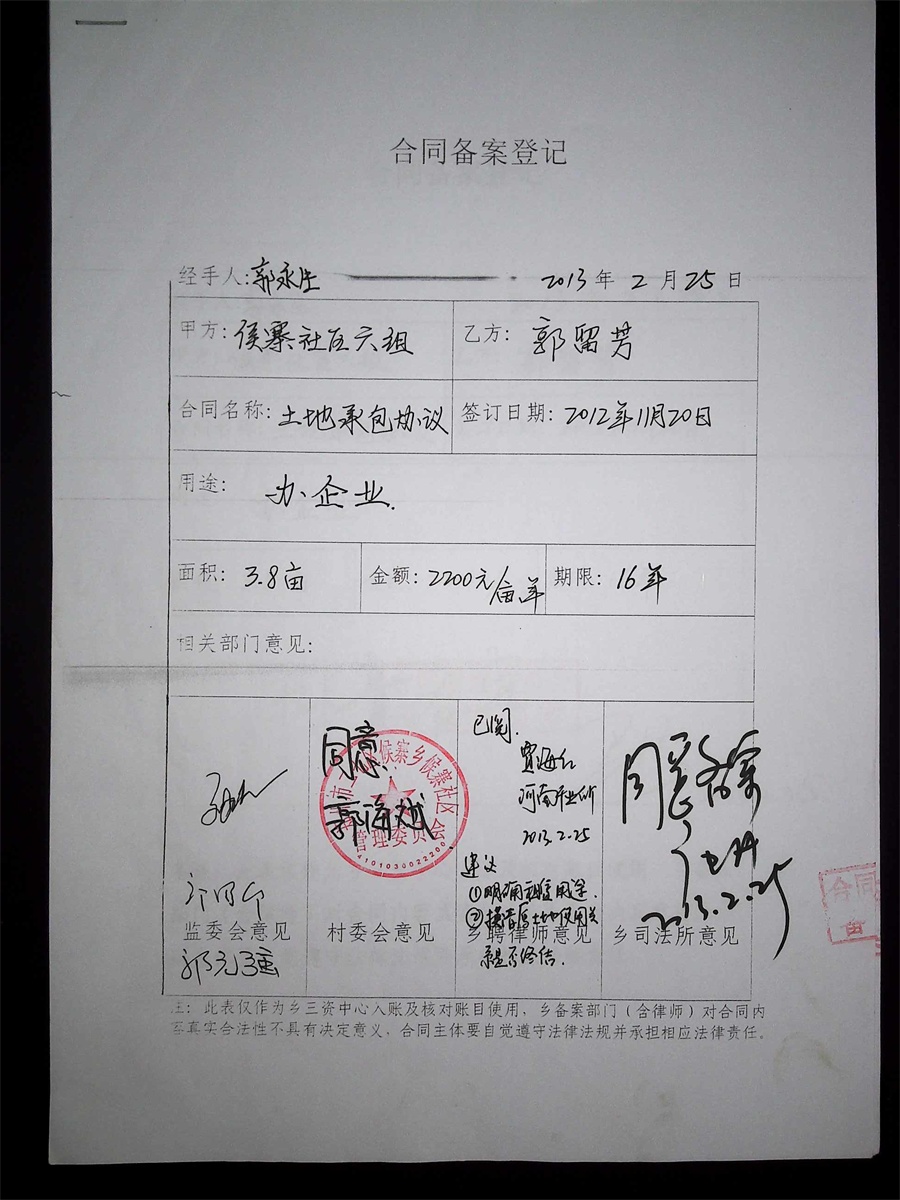 合同备案登记
经手人:郭永生 2013年2月25日
甲方:侯寨社区六组 乙方:郭留芳
合同名称:土地承包协议 签订日期:2012年11月20日
用途: 办企业.
面积: 3.8亩 金额:2200元/亩年 期限:16年
相关部门意见:
同意.
郭海斌
候寨乡候寨社区
管理委员会
4101030022200
已阅.
贾海红
2013.2.25
建议
①明确租赁用途.
②
土地使用关
系是否终结.
同意备案
2013.2.25
监委会意见 村委会意见 乡聘律师意见 乡司法所意见
郭元强
合同
注: 此表仅作为乡三资中心入账及核对账目使用, 乡备案部门(含律师)对合同内
容真实合法性不具有决定意义, 合同主体要自觉遵守法律法规并承担相应法律责任。